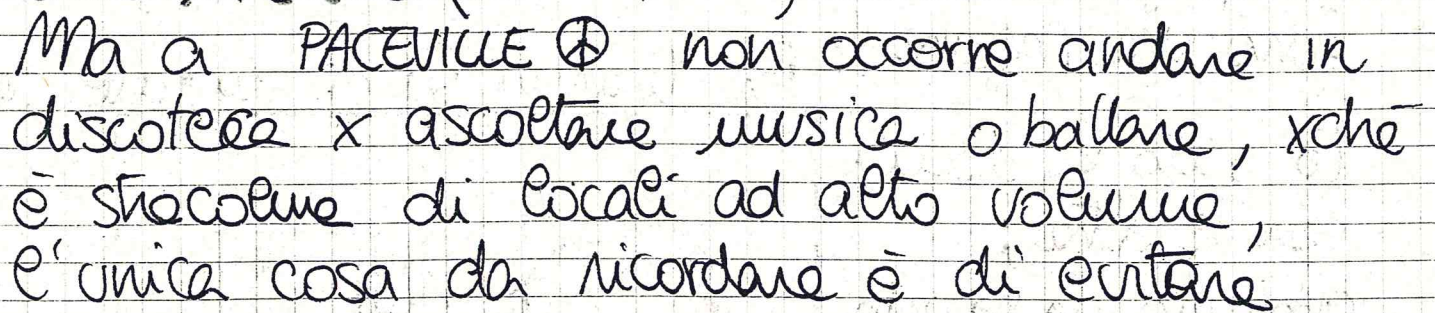 Ma a PACEVILLE ☮ non occorre andare in
discoteca x ascoltare musica o ballare, xchè
è stracolma di locali ad alto volume,
l'unica cosa da ricordare è di evitare